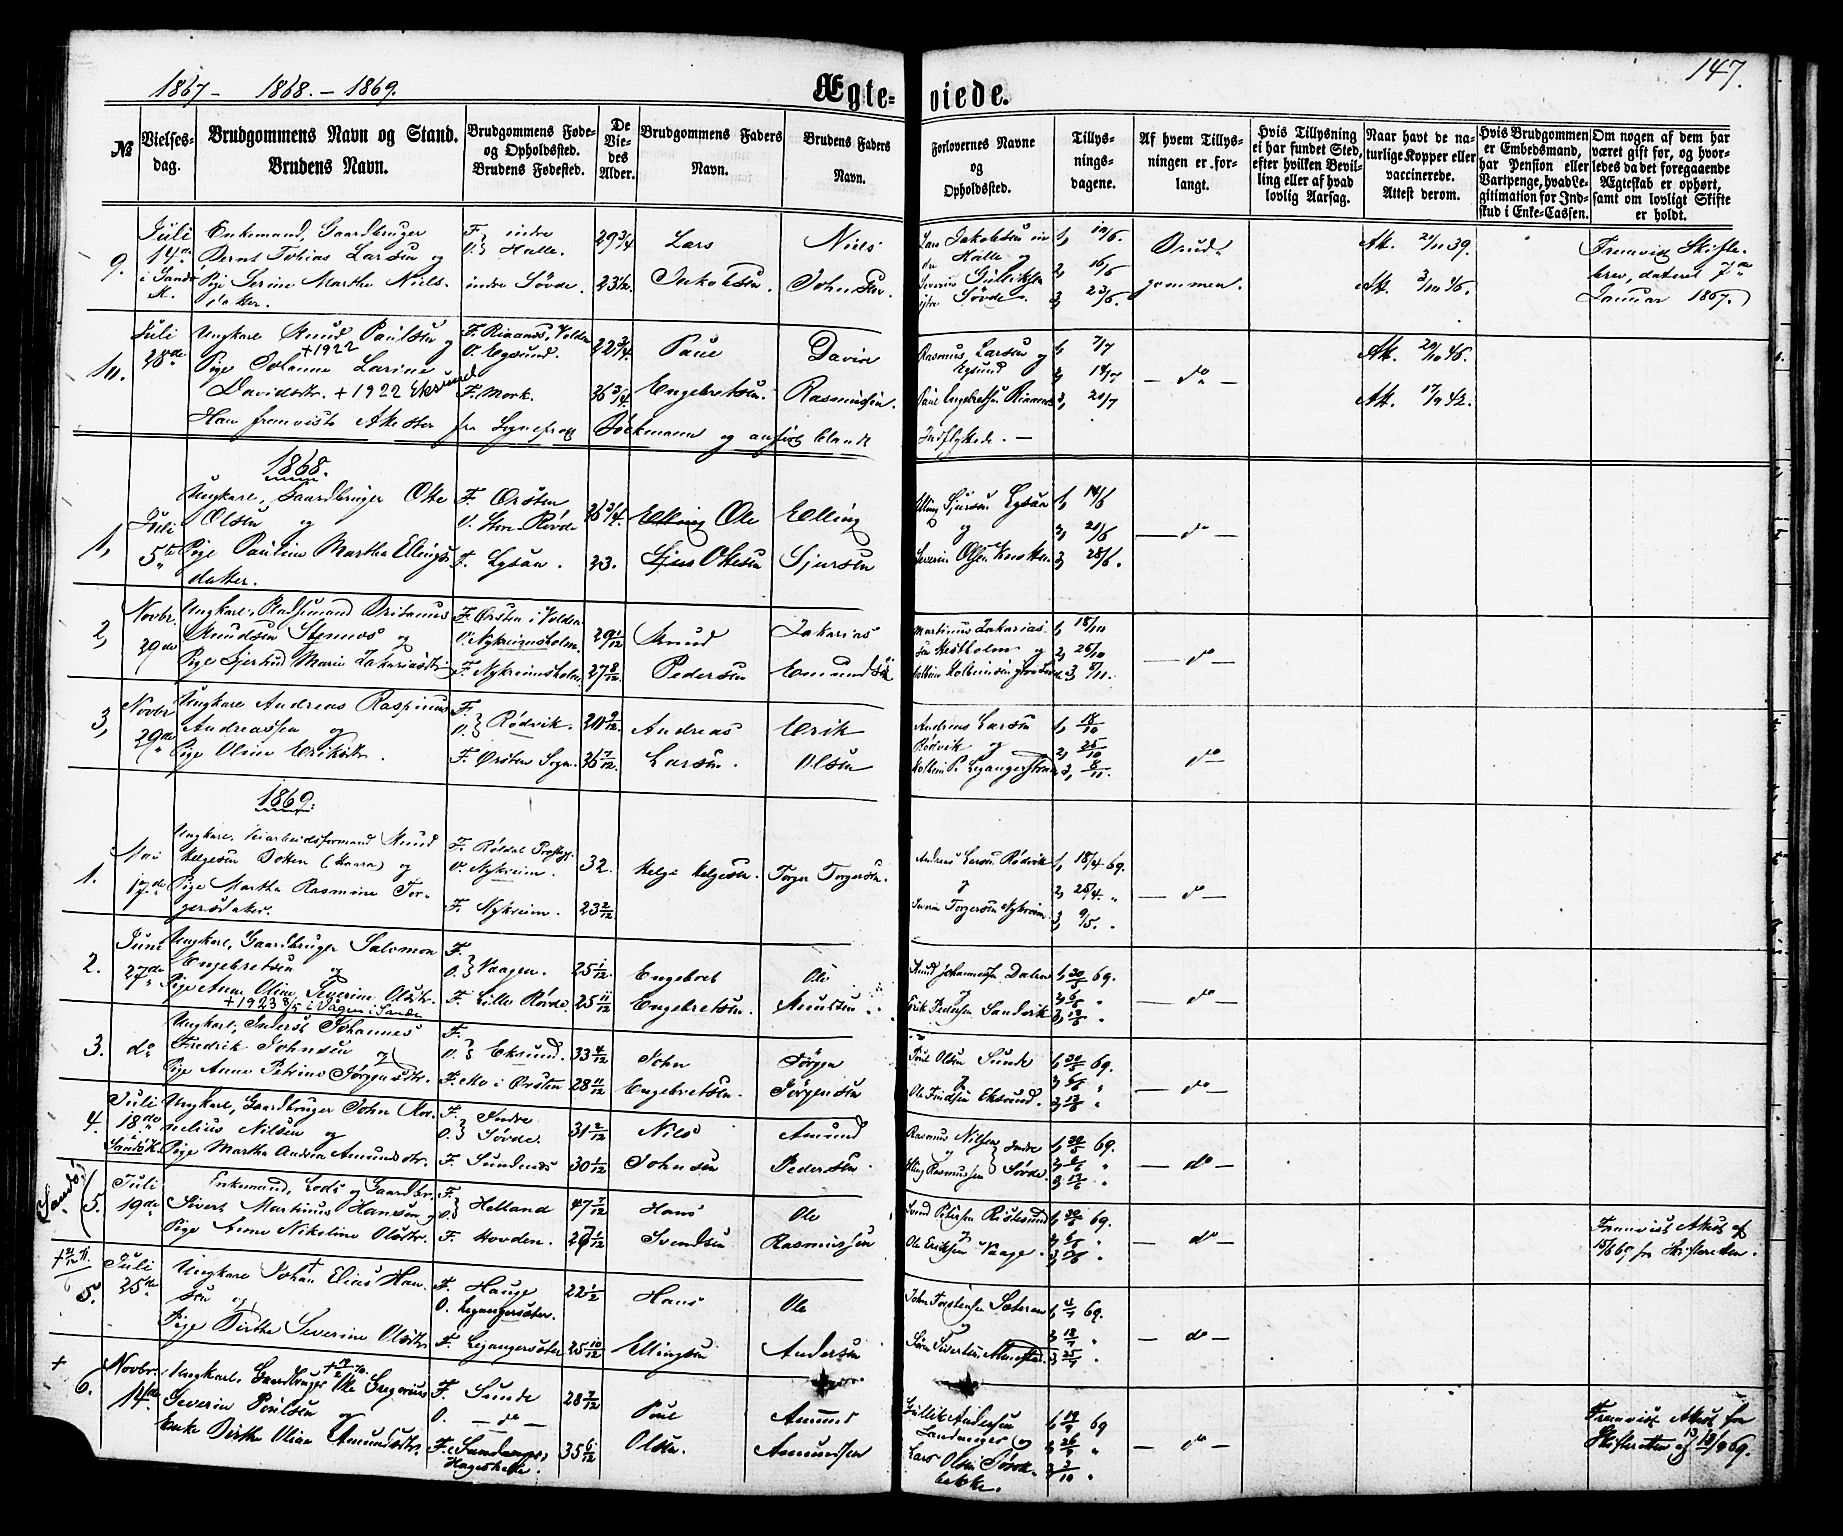 1867 - 1868. - 1869.
Ægte-
viede.
147.
№
Vielses-
dag.
Brudgommens Navn og Stand.
Brudens Navn.
Brudgommens Føde-
og Opholdssted.
Brudens Fødested.
De
Vie-
des
Alder.
Brudgommens Faders
Navn.
Brudens Faders
Navn.
Forlovernes Navne
og
Opholdssted.
Tillys-
nings-
dagene.
Af hvem Tillys-
ningen er for-
langt.
Hvis Tillysning
ei har fundet Sted,
efter hvilken Bevil-
ling eller af hvad
lovlig Aarsag.
Naar havt de na-
turlige Kopper eller
vaccinerede.
Attest derom.
Hvis Brudgommen
er Embedsmand,
har Pension eller
Vartpenge, hvad Le-
gitimation for Ind-
skud i Enke-Cassen.
Om nogen af dem har
været gift før, og hvor-
ledes da det foregaaende
Ægteskab er ophørt,
samt om lovligt Skifte
er holdt.
9.
Juli
14de
i Sandø
K.
Enkemand, Gaardbruger
Bernt Tobias Larsen og
Pige Serine Marthe Niels-
datter.
F. } indre
O. } Halle.
indre Søvde.
29 3/4
23 1/2.
Lars
Jakobsen
Niels
Johnsen
Lars Jakobsen in
dre Halle og
Severin Gulliksen
Søvde.
1,
2, 16/6
3, 23/6.
Brud-
gommen.
Att. 39.
Att. 46.
Fremvist Skifte-
brev, dateret 7de
Januar 1867.
10.
Juli
28de
Ungkarl Knud Paulsen og
+1922
Pige Johanne Larine
Davidsdtr. +1922 Eksund
F. Riaanæs, Volden
O. Egsund.
F. Mork.
22 3/4.
26 3/4.
Paul
Engebretsen.
David
Rasmussen.
Rasmus Larsen og
Egsund
Paul Engebretsen Riaanes
1, 7/7
2, 14/7
3, 21/7
— do —
Att. 46.
Att. 42.
Han fremviste Attester fra Sognepræst Bøckmann og anført blandt
Indflyttede. —
1868.
1,
Juli
5te
Ungkarl, Gaardbruger Otte
Olsen og
Pige Pauline Martha Ellings-
datter.
F. Ørsten
O. Store-Røvde
F. Lysaa.
26 3/4.
23.
Elling Ole
Sjurs Ottesen
Elling
Sjursen
Elling Sjursen Lysaa
og
Severin Olsen Knotten
1, 14/6
2, 21/6
3, 28/6.
— do —
2,
Novbr.
29de
Ungkarl, Pladsemand Britanus
Knudsen Stennæs og
Pige Gjertrud Marie Zakariasdtr.
F. Ørsten i Volden
O. Nykreimsholm.
F. Nykreimsholm.
29 1/12
27 8/12.
Knud
Pedersen
Zakarias
Emundsen
Martinus Zakarias
sen Kestholm og
1, 18/10
2, 25/10
3, 8/11.
— do —
3,
Novbr.
29de
Ungkarl Andreas Raspinus
Andreassen og
Pige Oline Eriksdtr.
F. } Rødvik.
O. }
F. Ørsten Sogn.
20 9/12
26 7/12.
Andreas
Larsen.
Erik
Olsen
Andreas Larsen
Rødvik og
Kolbein P. Legangerstrand
1, 18/10
2, 25/10
3, 8/11.
do
1869.
1.
Mai
17de
Ungkarl, Veiarbeidsformand Knud
Helgesen Botten (Haara) og
Pige Martha Rasmine Tor-
gersdatter.
F. Røldal Prestegj.
O. Nykreim.
F. Nykreim.
32.
23 2/12
Helge Helgesen.
Torger Torgersen.
Andreas Larsen Rødvik
og
Torgersen Nykreim.
1, 18/4 69.
2, 25/4. "
3, 9/5. "
— do —
2.
Juni
27de
Ungkarl, Gaardbruger Salomon
Engebretsen og
Pige Anne Oline Severine Olsdtr.
+1923 8/5 i Vågen i Sande
F. } Vaagen.
O. }
F. Lille Røvde.
25 1/12.
25 11/12
Engebret
Engebretsen.
Ole
Knutsen
Knud Johannessen Dalen
og
Erik Pedersen Sandvik
1, 30/5 69.
2, 6/6 "
3, 13/6 "
— do —
3.
do
Ungkarl, Inderst Johannes
Fredrik Johnsen og
Pige Anne Petrine Jørgensdtr.
F. } Eksund.
O. }
F. Mo i Ørsten
33 4/12
28 11/12
John
Engebretsen.
Jørgen
Jørgensen
Poul Olsen Sunde
og
Ole Findsen Eksund.
1, 30/5 69.
2, 6/6 "
3, 13/6 "
— do —
4.
Juli
18de
i
Sandø K.
Ungkarl, Gaardbruger John Kor-
nelius Nilsen og
Pige Martha Andrea Amundsdtr.
F. } Indre
O. } Søvde.
F. Sundnæs
31 2/12
30 1/12
Nils
Johnsen
Amund
Pedersen.
Rasmus Nilsen } Indre
og
Elling Rasmussen } Søvde.
1, 30/5 69.
2, 6/6 "
3, 13/6 "
— do —
(Sandø)
(5.
Juli
19de
Enkemand, Lods og Gaardbr.
Sivert Martinus Hansen og
Pige Anne Nikoline Olsdtr.
F. } Helland
O. }
F. Hovden.
47 7/12
27 1/12
Hans
Svendsen
Ole
Rasmussen
Svend Petersen Ristesund
og
Ole Eriksen Vaage.
1, 30/5 69.
2, 6/6 "
3, 13/6 "
— do —
Fremvist Attest af
15/6 69 fra Skifteretten.
5.
Juli
25de
Ungkarl Johan Elias Han-
sen og
Pige Birthe Severine Olsdtr.
F. Hauge
O. Legangersæter.
F. Legangersæter
22 1/2
25 10/12
Hans
Ellingsen
Ole
Andersen
John Torstensen Sæteren
og
Søren Sivertsen
1, 11/7 69.
2, 18/7 "
3, 25/7 "
— do —
+
6.
Novbr.
14de
Ungkarl, Gaardbruger Ole Gregorius
Severin Poulsen og
Enke Birthe Oline Amundsdtr.
F. Sunde
O. — do —
F. Sandanger,
Hageskatte.
28 7/12
35 6/12
Poul
Olsen.
Amund
Asmundsen
Gullik Andersen
Sandanger og
Lars Olsen Søvde-
bekke.
1, 19/9 69
2, 26/9 "
3, 3/10 "
— do —
Fremvist Attest fra
Skifteretten af 13/9 69.